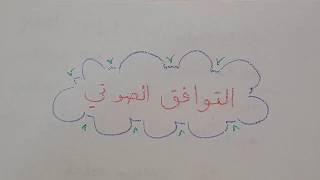 التوافق الصوتي